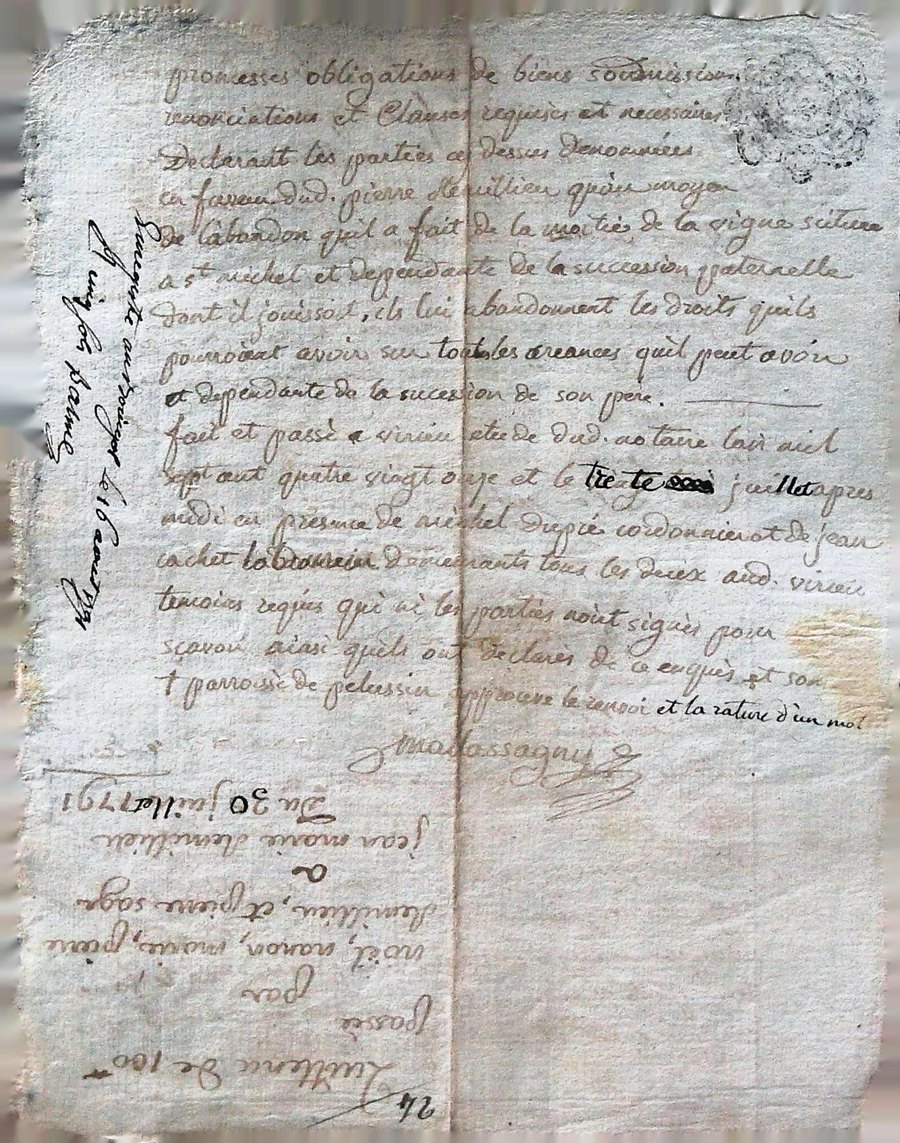 promesses obligations de biens soumissions
renonciations et Clauses requises et necessaires
Declarant les parties cy dessus denommées
en faveur dud. pierre demillieu qu'au moyen
de l'abandon quil a fait de la moitié de la vigne scituée
a st michel et dependante de la succession paternelle
dont il jouissoit, ils lui abandonnent les droits quils
pourroient avoir sur toutes les creances quil peut avoir
et dependante de la sucession de son pere.
fait et passé a virieu etude dud. notaire lan mil
sept cent quatre vingt onze et le trente juillet apres
midi en presence de michel dupié cordonnier et de jean
vachet demeurants tous les deux aud. virieu
temoins requis qui ni les parties n'oint signés pour
scavoir ainsi quils ont declarés de ce enquis et son
† parroisse de pelussin approuvé le renvoi et la rature d'un mot
mallassagny
Enregistré le 16 aoust 1791
sols
Du 30 juillet 1791
jean marie demillieu
a
demillieu, et pierre sage
noël, nanon, marie, pierre
par
passée
Quittence de 100
24